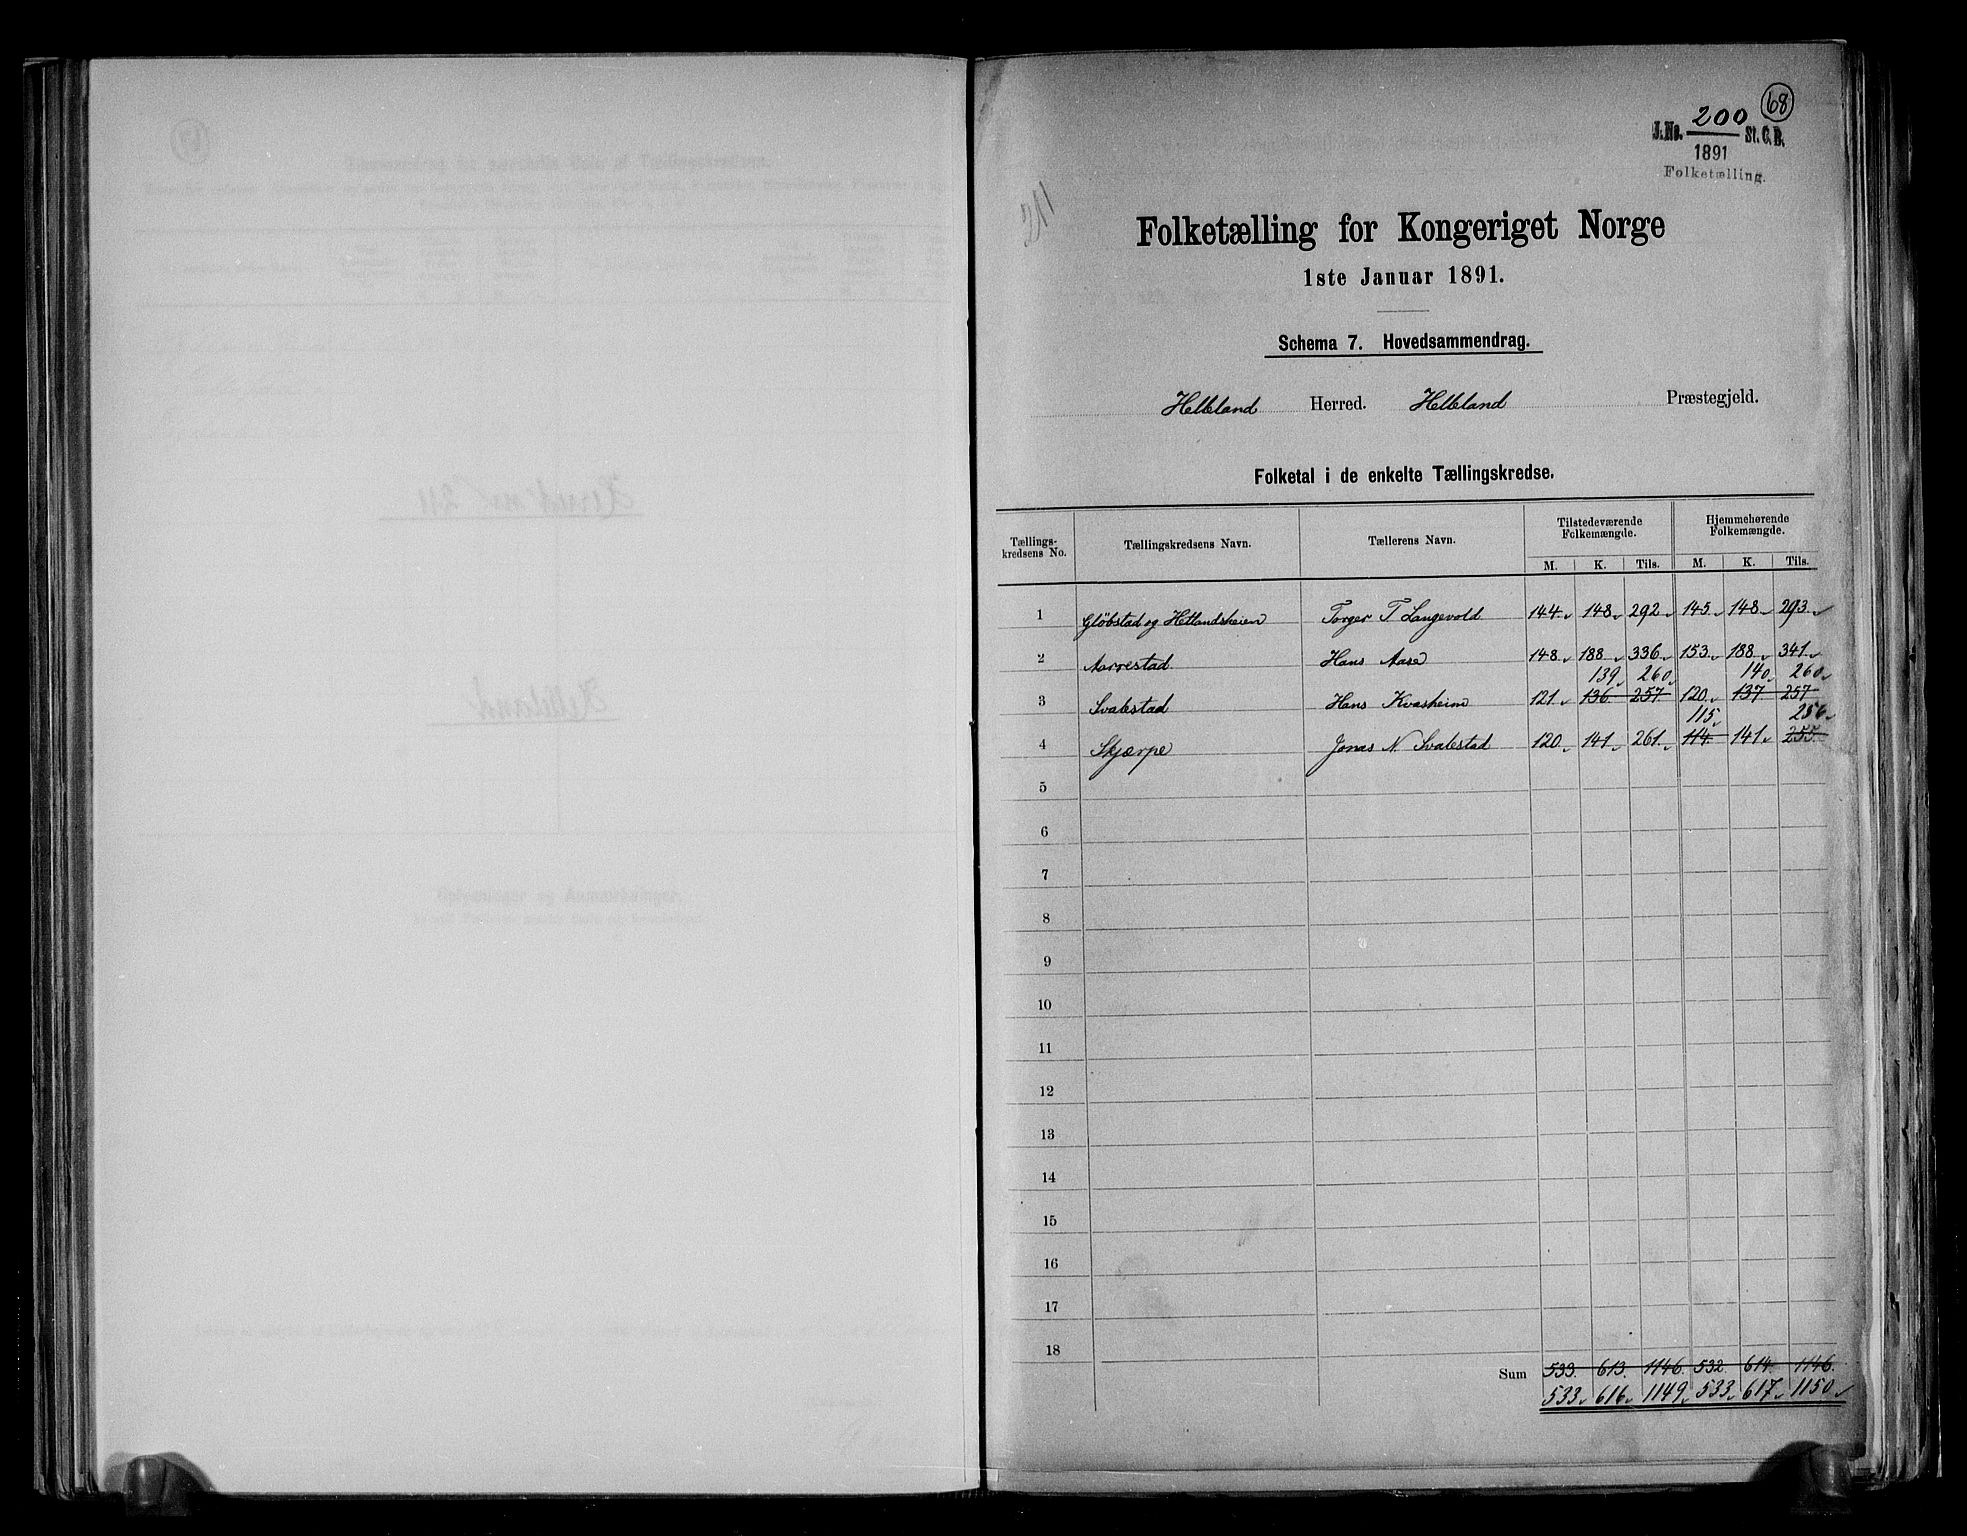 68
J.No. 200 St. C. B.
1891
Folketælling.
211
Folketælling for Kongeriget Norge
1ste Januar 1891.
Schema 7. Hovedsammendrag.
Helleland Herred. Helleland Præstegjeld.
Folketal i de enkelte Tællingskredse.
Tællings-kredsens No. Tællingskredsens Navn. Tællerens Navn. Tilstedeværende Folkemængde. Hjemmehørende Folkemængde.
M. K. Tils. M. K. Tils.
1 Gløbstad og Hetlandsheien Torger T Langevold 144 148 292 145 148 293
2 Aarrestad Hans Aase 148 188 336 153 188 341
139 260 140 260
3 Svalestad Hans Kvasheim 121 136 257 120 137 257
115 256
4 Skjærpe Jonas N. Svalestad 120 141 261 114 141 255
5
6
7
8
9
10
11
12
13
14
15
16
17
18
Sum 533 613 1146 532 614 1146
533 616 1149 533 617 1150